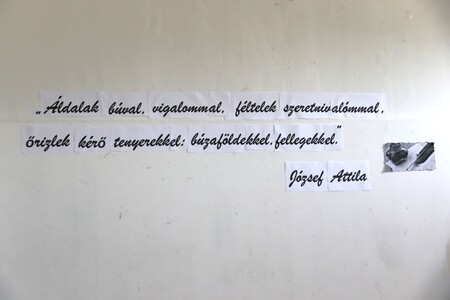 „Áldalak búval, vigalommal, féltelek szeretnivalómmal,
őrizlek kérő tenyerekkel: búzaföldekkel, fellegekkel."
József Attila